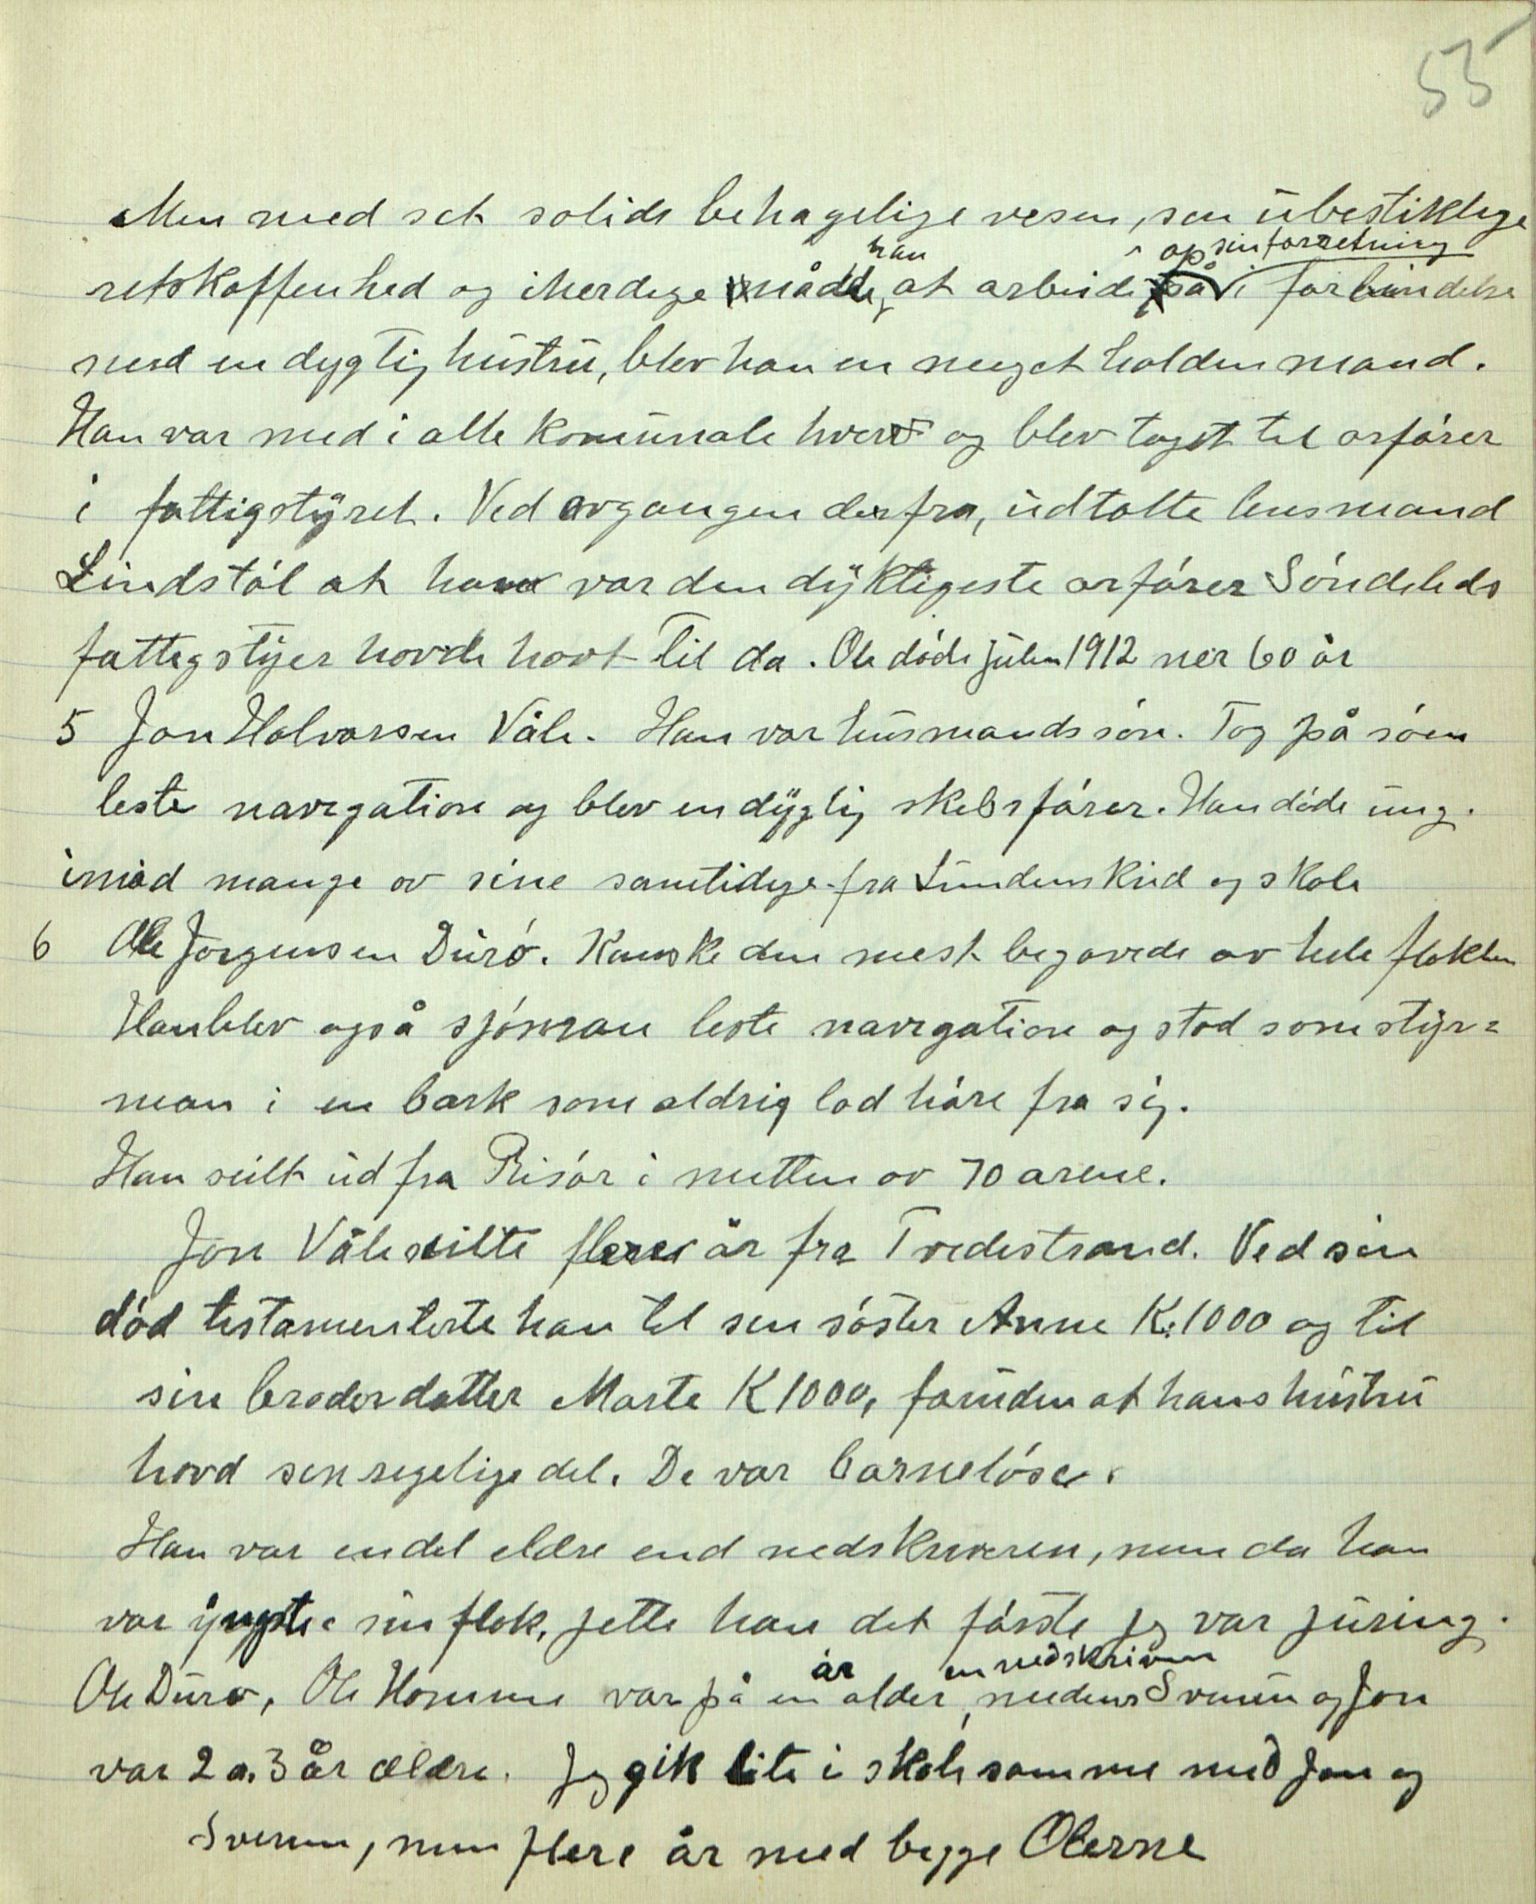 55
Men med set solide behagelige vesen, sen ubestiklige
retskaffenhed og iherdige måtte han at arbeide op sin forretning i forbindelse
med en dygtig hustru, blev han en meget holden mand.
Han var med i alle komunale hverv og blev taget til orfører
i fattigstyret. Ved avgangen derfra, udtalte lensmand
Lindstøl at han var den dyktigeste orfører Søndeleds
fattigstyer havde havt til da. Ole døde julen 1912 ner 60 år
5 Jon Halvorsen Våle. Han var husmandssøn. Tog på søen
leste navigation og blev en dygtig skebsfører. Han døde ung.
imod mange av sine samtidige fra Sundenskid og skole
6 Ole Jørgensen Durø. Kanske den mest begavede av hele flokken
Han blev også sjøman leste navigation og stod som styr=
man i en bark som aldrig lod høre fra sig.
Han seilt ud fra Risør i mitten av 70 arene.
Jon Våle seilte flere år fra Tvedestrand. Ved sin
død testamenterte han til sen søster Anne K:1000 og til
sin broderdatter Marte K 1000, foruden at hans hustru
havd sen regelige del. De var barneløse.
Han var endel eldre end nedskriveren, men da han
var yngste i sin flok, jette han det første jeg var juring.
Ole Durø, Ole Homme var på en år alder en nedskriven, medens Svenn og Jon
var 2 a. 3 år ældre. Jeg gik lite i skole samme med Jon og
Svenn, men flere år med begge Olerne